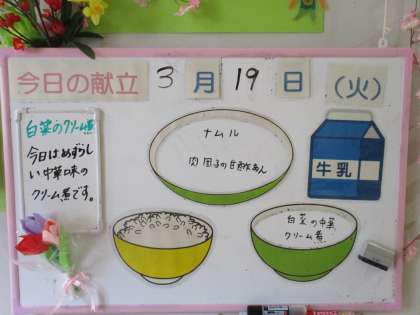 今日の献立 3月19日(火)
白菜のクリーム煮
今日はめずらし
い中華味の
クリーム煮です。
ナムル
肉団子の甘酢あん
牛乳
白菜の中華
クリーム煮